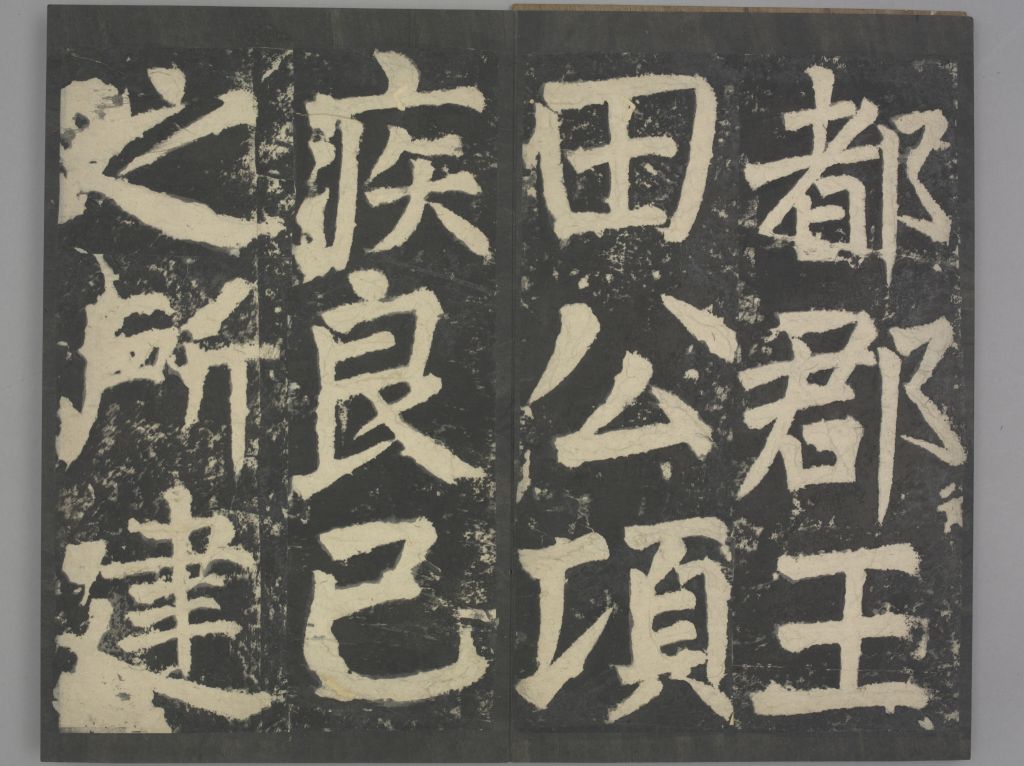 都郡王
田公項
疾良已
之所建